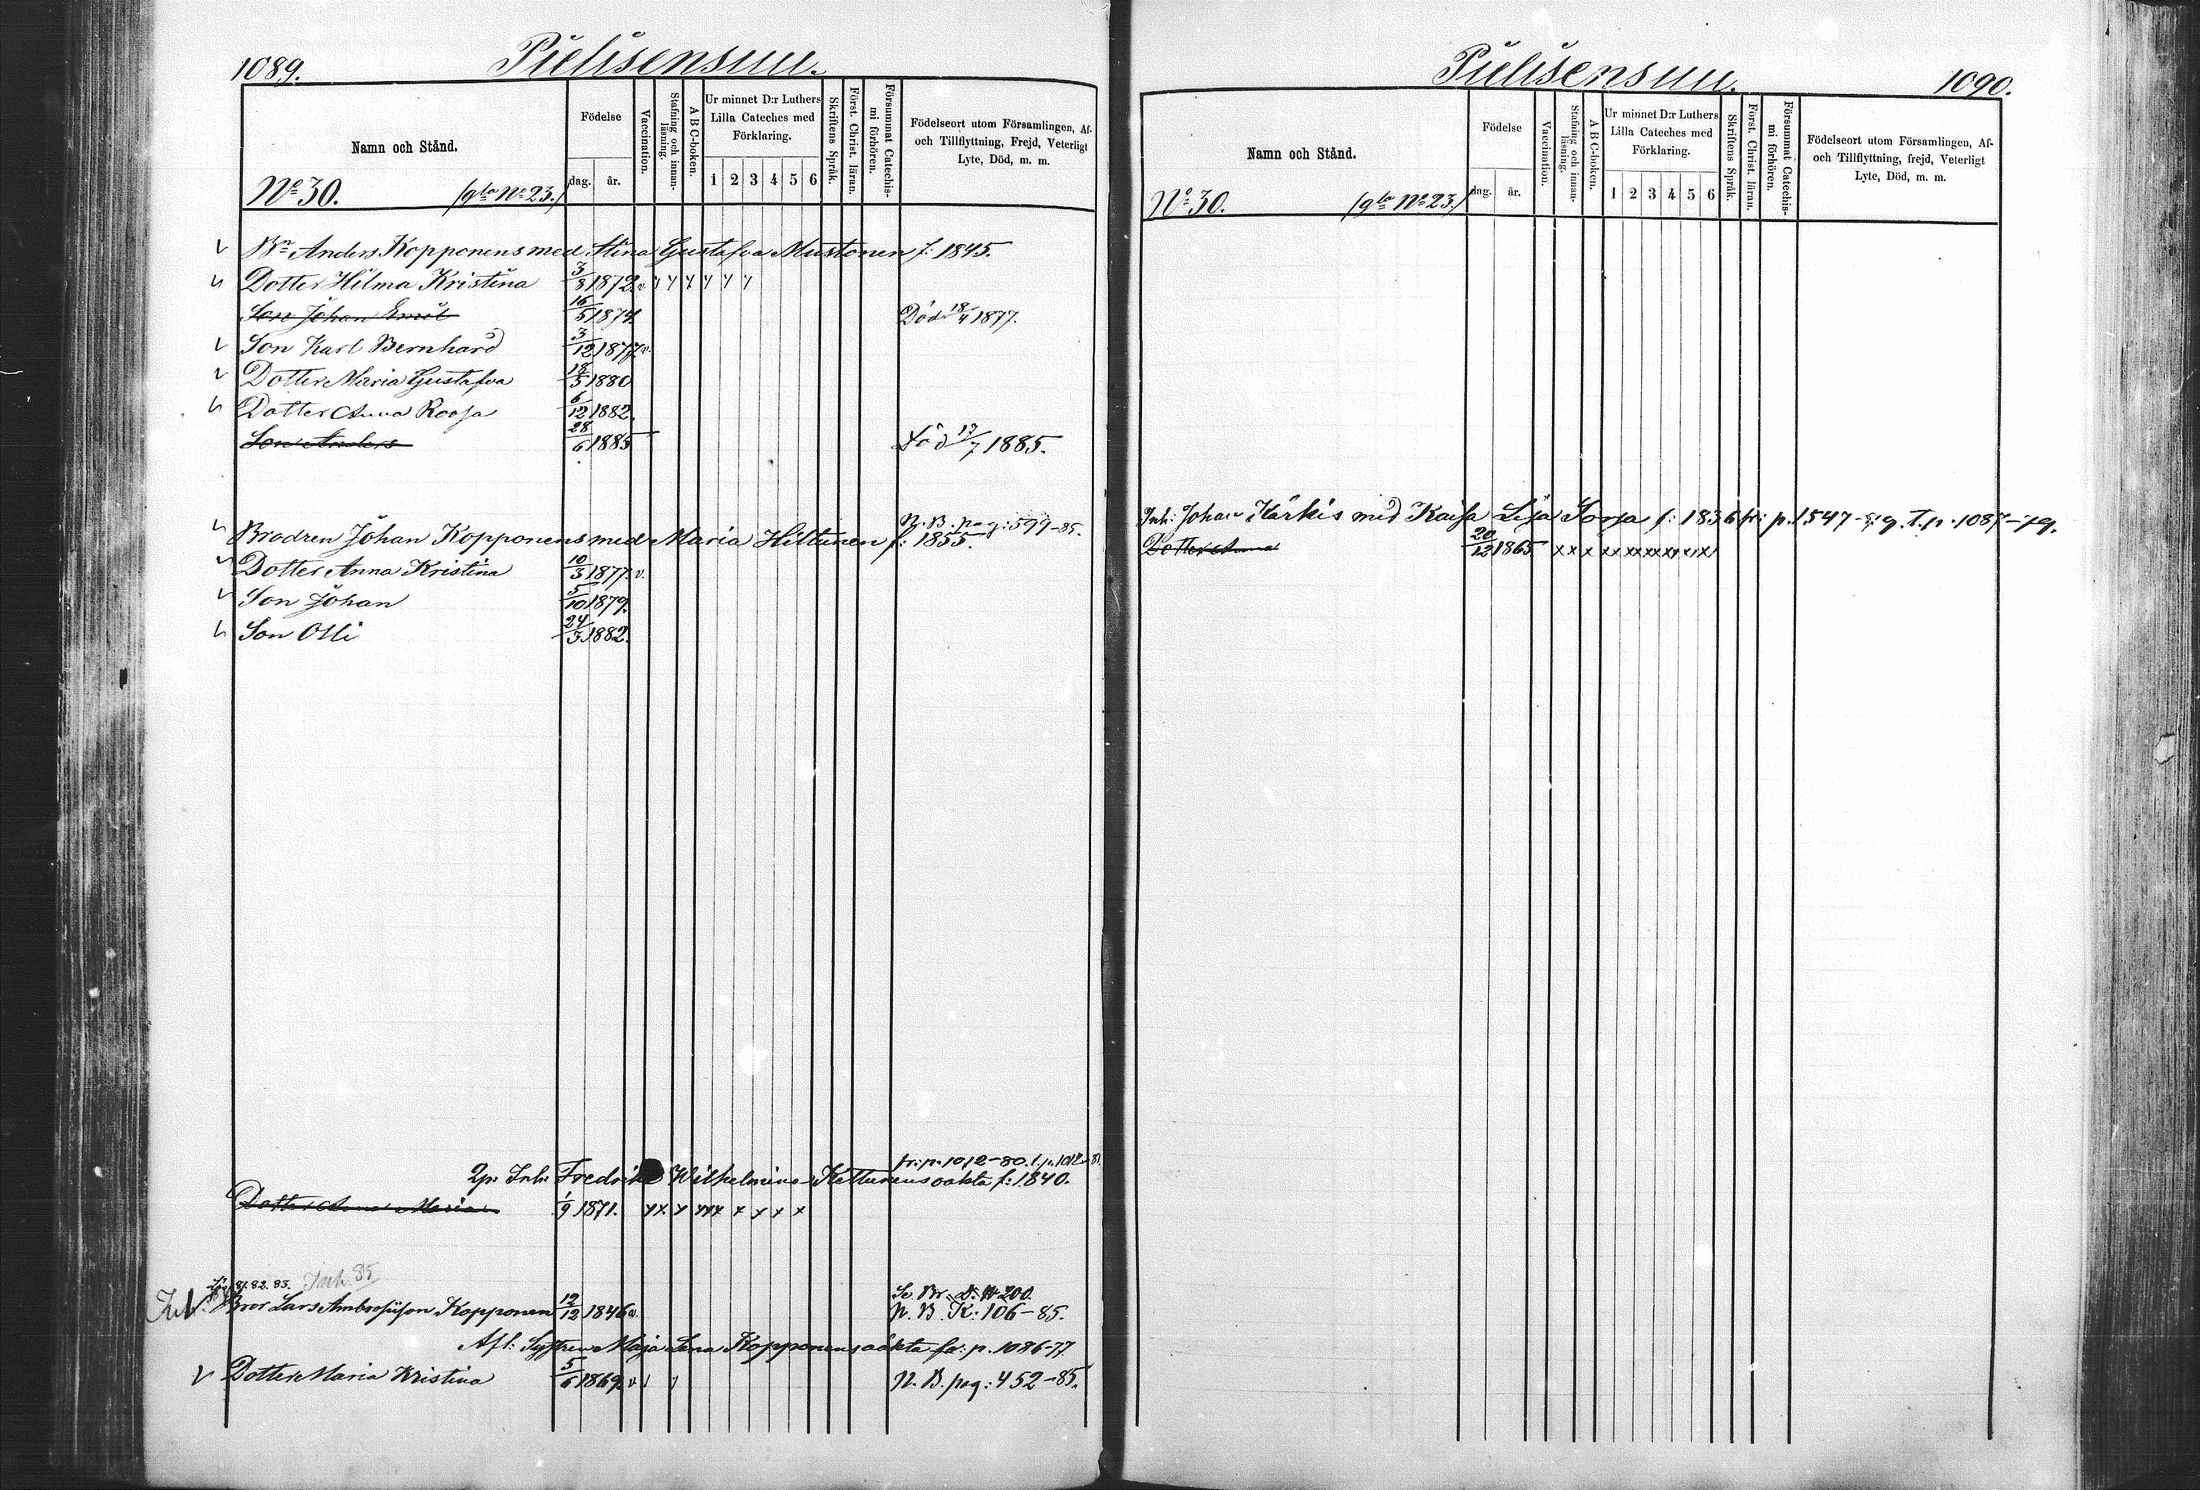 1089.
Pielisensuu.
Namn och Stånd.
Födelse
dag.
år.
Vaccination.
Stafning och innan-läsning.
ABC-boken.
Ur minnet D:r Luthers
Lilla Cateches med
Förklaring.
1 2 3 4 5 6
Skriftens Språk.
Först. Christ. läran.
Försummat Catechis-mi förhören.
Födelseort utom Församlingen, Af-
och Tillflyttning, Frejd, Veterligt
Lyte, Död, m. m.
No 30. /gla No 23./
Bn Anders Kopponens med Stina Gustafva Mustonen f: 1845.
Dotter Hilma Kristina 3/8 1872. v.
Son Johan Emil 16/5 1874 Död 18/4 1877.
Son Karl Bernhard 3/12 1877. v.
Dotter Maria Gustafva 18/5 1880
Dotter Anna Roosa 6/12 1882.
Son Anders 28/6 1885 Död 17/7 1885.
N. B. pag: 599-85.
Brodren Johan Kopponens med Maria Hiltunen f: 1855.
Dotter Anna Kristina 10/3 1877. v.
Son Johan 5/10 1879.
Son Olli 24/3 1882.
fr: p. 1012-80. t. p. 1012-81
Inh: Fredrika Wilhelmina Kettunens oäkta f: 1840.
Dotter Anna Maria 1/9 1871. x x x x x x x x x x
81. 82. 83. Inh. 85
Inh. Bror Lars Ambrosiison Kopponen 12/12 1846 v. Se Br. D. No 200.
N. B. K: 106-85.
Afl: Systren Maja Lena Kopponens oäkta fr: p. 1086-77
Dotter Maria Kristina 5/6 1869. v N. B. pag: 452-85.
Pielisensuu.
1090.
Namn och Stånd.
Födelse
dag.
år.
Vaccination.
Stafning och innan-läsning.
ABC-boken.
Ur minnet D:r Luthers
Lilla Cateches med
Förklaring.
1 2 3 4 5 6
Skriftens Språk.
Först. Christ. läran.
Försummat Catechis-mi förhören.
Födelseort utom Församlingen, Af-
och Tillflyttning, frejd, Veterligt
Lyte, Död, m. m.
No 30. /gla No 23./
Inh: Johan Kärkis med Kaisa Lisa Sorsa f: 1836 fr: p. 1547-79. t. p. 1087-79.
Dotter Anna 20/12 1865 x x x x x x x x x x x